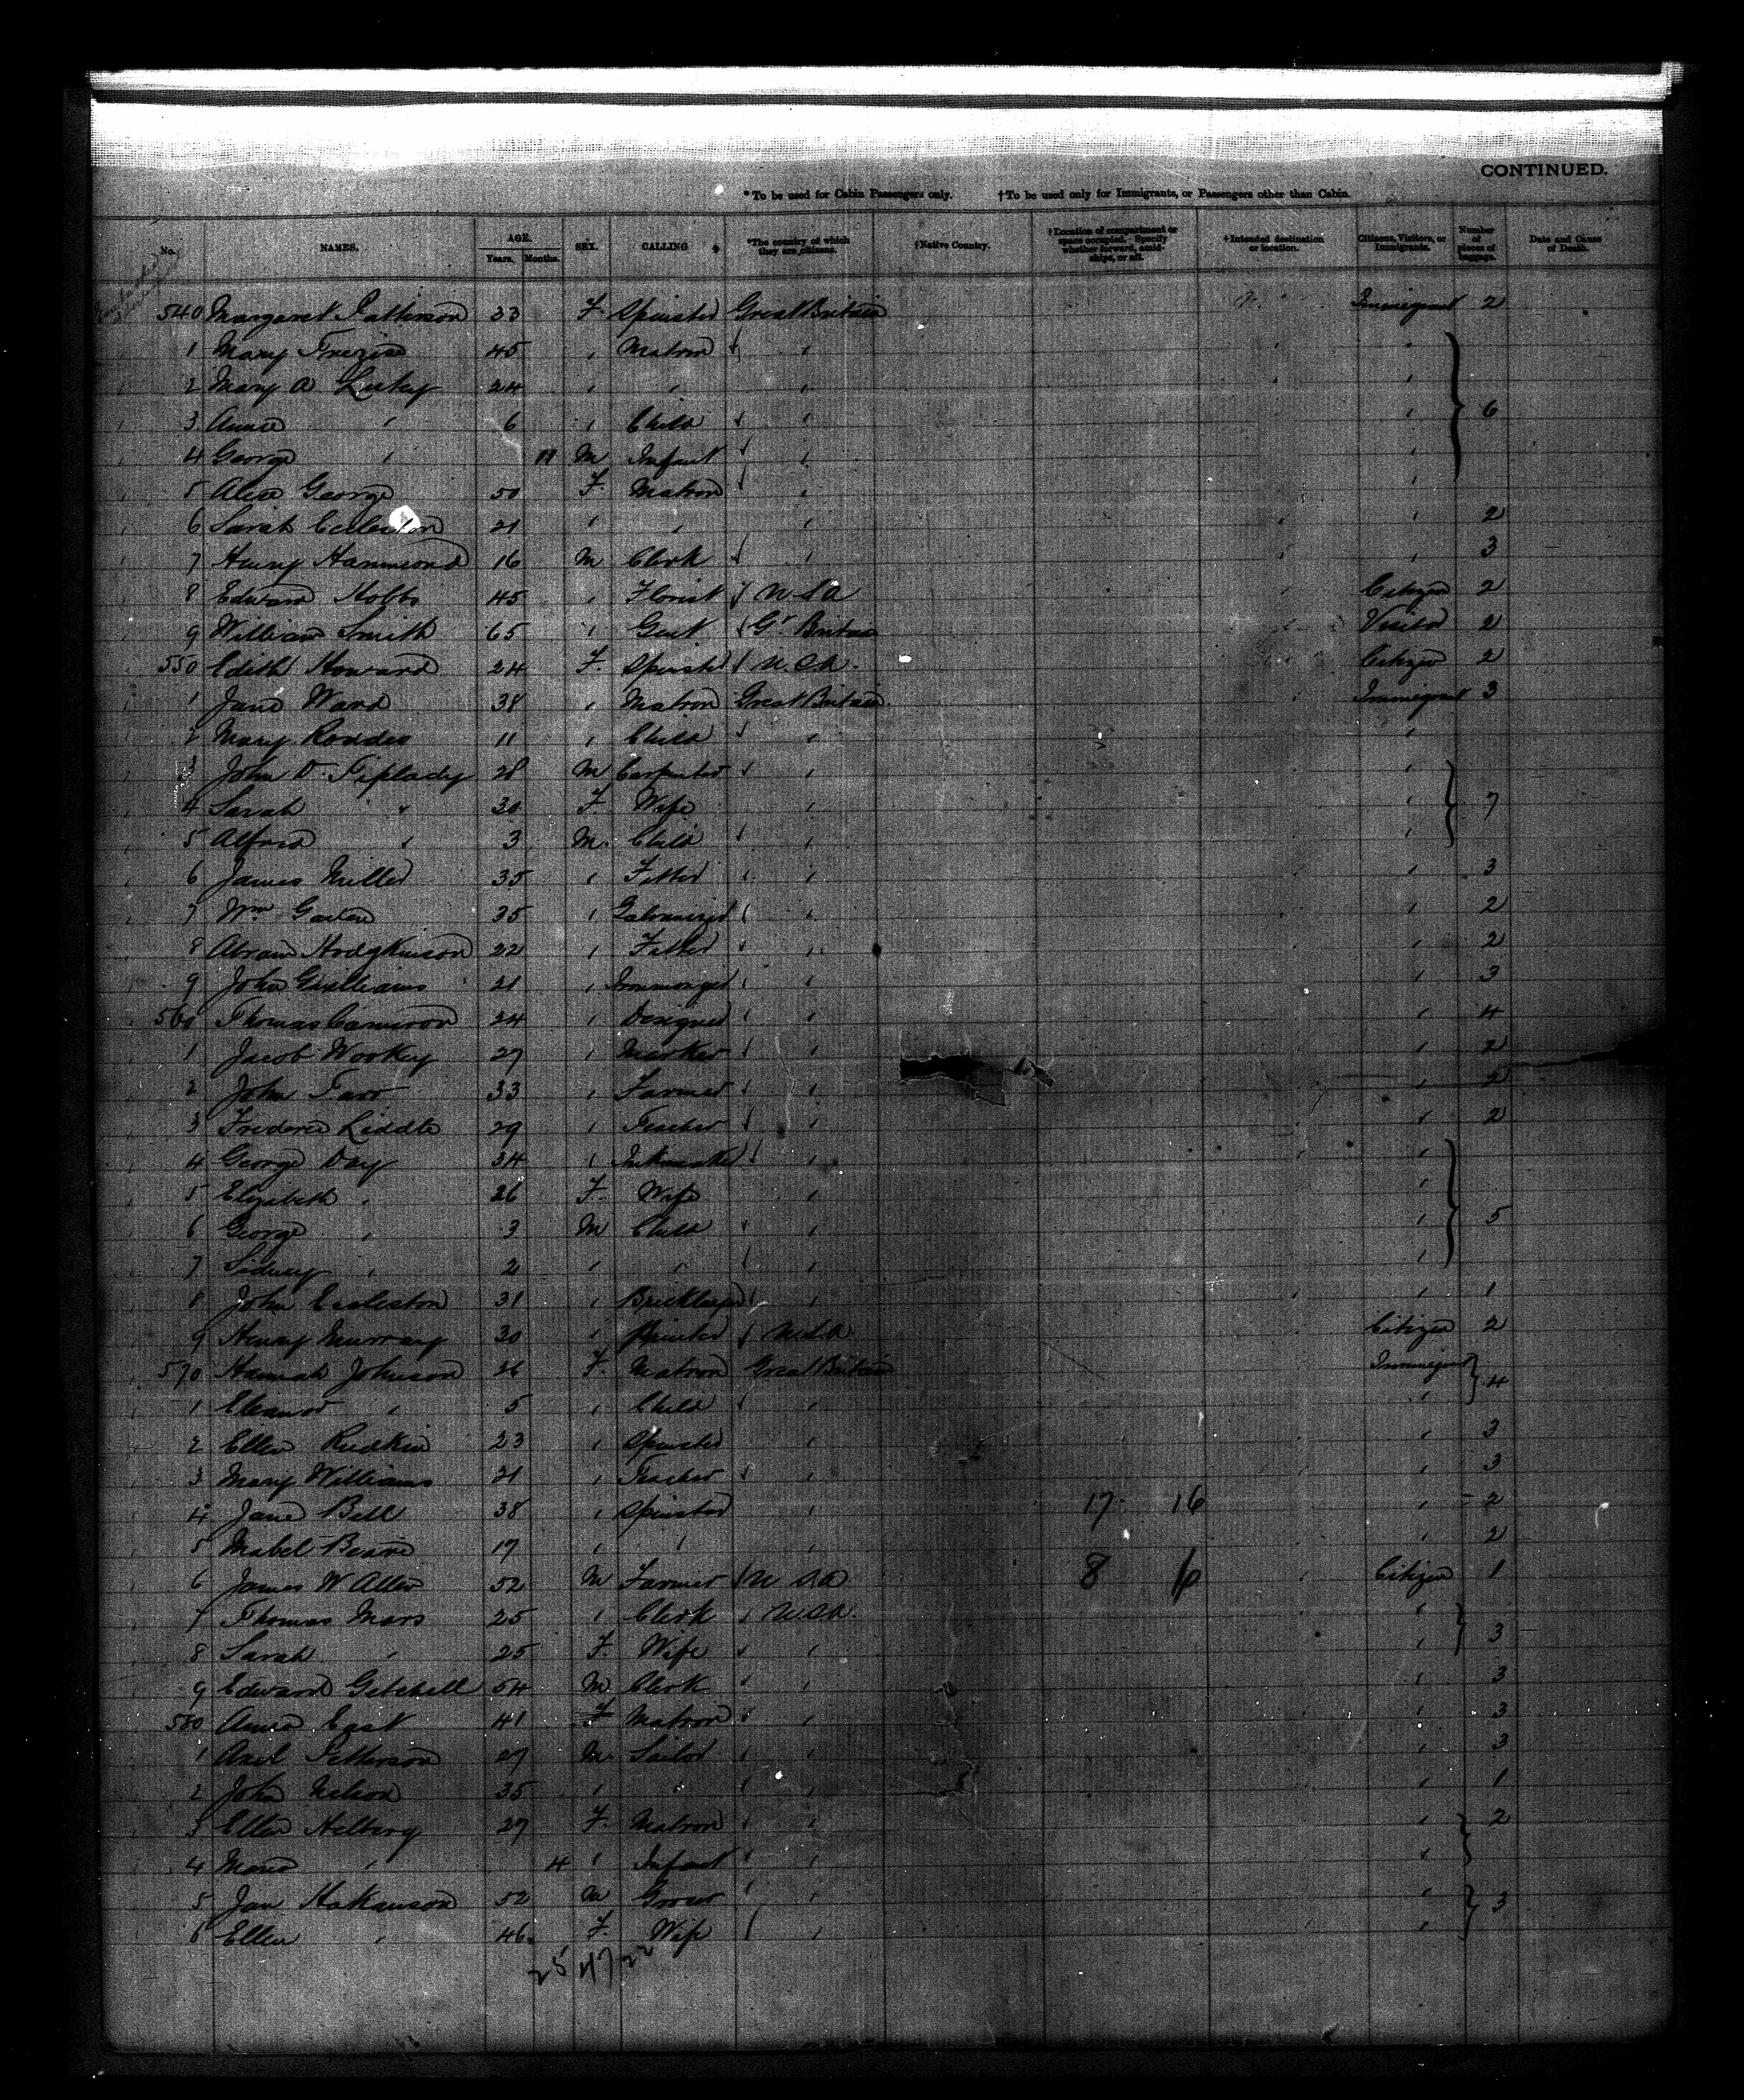 CONTINUED.
*To be used for Cabin Passengers only. †To be used only for Immigrants, or Passengers other than Cabin.
No. NAMES. AGE. Years. Months. SEX. CALLING *The country of which they are citizens. †Native Country. †Location of compartment or space occupied. Specify whether forward, amidships, or aft. †Intended destination or location. Citizens, Visitors, or Immigrants. Number of pieces of baggage. Date and Cause of Death.
540 Margaret Patterson 33 F. Spinster Great Britain Immigrant 2
1 Mary 45 " Matron " "
2 Mary A 24 " " " "
3 Annie " 6 " Child " " 6
4 George " 11 M Infant " "
5 Alice George 50 F. Matron " "
6 Sarah 21 " " " " 2
7 Henry Hammond 16 M Clerk " " 3
8 Edward Hobbs 45 " Florist U S A Citizen 2
9 William Smith 65 " Gent Gr Britain Visitor 2
550 Edith Howard 24 F. Spinster U.S.A. Citizen 2
1 Jane Ward 38 " Matron Great Britain Immigrant 3
2 Mary 11 " Child " "
3 John D. Tiplady 28 M Carpenter " "
4 Sarah " 30 F. Wife " " 7
5 Alfred " 3 M. Child " "
6 James Miller 35 " Fitter " " 3
7 Wm 35 " Galvanizer " " 2
8 Abram Hodgkinson 22 " Fitter " " 2
9 John 21 " Ironmonger " " 3
560 Thomas Cameron 24 " Designer " " 4
1 Jacob Wookey 27 " Marker " " 2
2 John Farr 33 " Farmer " " 2
3 Frederic Liddle 29 " Teacher " " 2
4 George Day 34 " Inkmaker " "
5 Elizabeth " 26 F. Wife " "
6 George " 3 M Child " " 5
7 Sidney " 2 " " " "
8 John Eccleston 31 " Bricklayer " " 1
9 Henry Murray 30 " U.S.A. Citizen 2
570 Hannah Johnson 26 F. Matron Great Britain Immigrant 4
1 Eleanor " 5 " Child " "
2 Ellen Rudkin 23 " Spinster " " 3
3 Mary Williams 21 " Teacher " " 3
4 Jane Bell 38 " Spinster " 17 16 " 2
5 Mabel 17 " " " " 2
6 James W Allen 52 M Farmer U S A 8 6 Citizen 1
7 Thomas Mars 25 " Clerk U.S.A. "
8 Sarah " 25 F. Wife " " 3
9 Edward Getchell 54 M Clerk " " 3
580 Annie East 41 F Matron " " 3
1 Axel Petterson 27 M. Sailor " " 3
2 John Nelson 35 " " " " 1
3 Ellen 27 F. Matron " " 2
4 Maria " 4 " Infant " "
5 Jan Hakanson 52 M Grocer " " 3
6 Ellen " 46 F. Wife " "
25 47 22